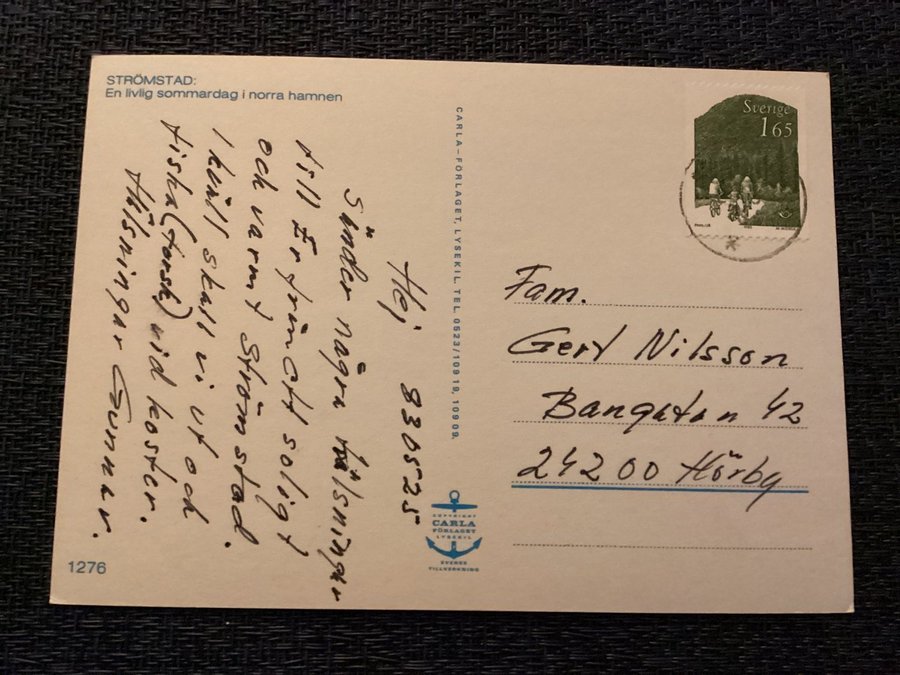 STRÖMSTAD:
En livlig sommardag i norra hamnen
Hej 830525
Sänder några hälsningar
till Er från ett soligt
och varmt Strömstad.
I kväll skall vi ut och
fiska (torsk) vid koster.
Hälsningar Gunnar.
1276
CARLA-FÖRLAGET, LYSEKIL. TEL. 0523/109 19, 109 09.
COPYRIGHT
CARLA
FÖRLAGET
LYSEKIL
SVENSK
TILLVERKNING
Sverige
165
Fam.
Gert Nilsson
Bangatan 42
24200 Hörby